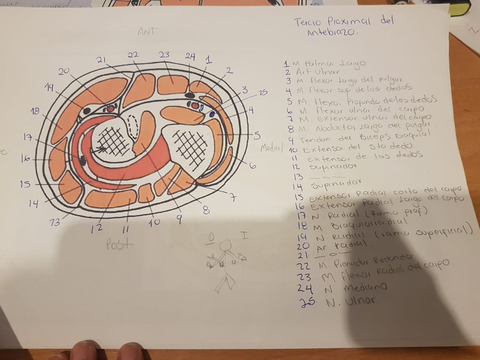 Tercio Proximal del
Antebrazo
ANT
22
23
24
21
1
20
2
19
3
25
18
4
17
5
Medial
16
6
15
7
14
8
13
12
11
10
9
Post
D
I
1 M Palmar largo
2 Art Ulnar
3 M Flexor largo del pulgar
4 M Flexor sup de los dedos
5 M Flexor Profundo de los dedos
6 M Flexor ulnar del carpo
7 M Extensor ulnar del carpo
8 M largo del pulgar
9 Tendon del Biceps Braquial
10 Extensor del 5to dedo
11 Extensor de los dedos
12 Supinador
13
14 Supinador
15 Extensor Radial corto del carpo
16 Extensor Radial largo del carpo
17 N Radial (Ramo prof)
18 M Braquiorradial
19 N Radial (ramo superficial)
20 Ar Radial
21
22 M Pronador Redondo
23 M Flexor Radial del carpo
24 N Mediano
25 N. Ulnar